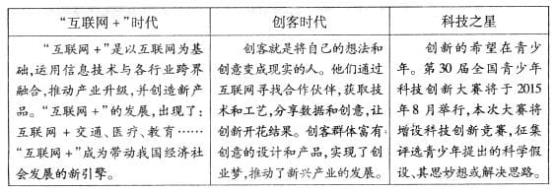 “互联网+”时代
“互联网+”是以互联网为基
础,运用信息技术与各行业跨界
融合,推动产业升级,并创造新产
品。“互联网+”的发展,出现了:
互联网+交通、医疗、教育……
“互联网+”成为带动我国经济社
会发展的新引擎。
创客时代
创客就是将自己的想法和
创意变成现实的人。他们通过
互联网寻找合作伙伴,获取技
术和工艺,分享数据和创意,让
创新开花结果。创客群体富有
创意的设计和产品,实现了创
业梦,推动了新兴产业的发展。
科技之星
创新的希望在青少
年。第30届全国青少年
科技创新大赛将于2015
年8月举行,本次大赛将
增设科技创新竞赛,征集
评选青少年提出的科学假
设、其思妙想或解决思路。